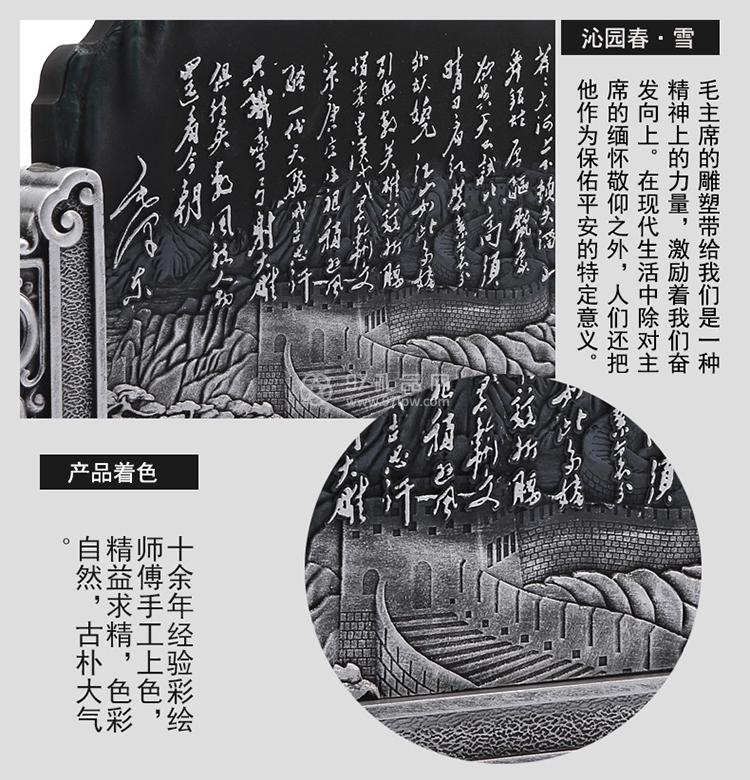 沁园春·雪
毛主席的雕塑带给我们是一种
精神上的力量，激励着我们奋
发向上。在现代生活中除对主
席的缅怀敬仰之外，人们还把
他作为保佑平安的特定意义。
莽大河上下顿失滔滔山
舞银蛇原驰蜡象
欲与天公试比高须
晴日看红装素裹分
外妖娆江山如此多娇
引无数英雄竞折腰
惜秦皇汉武略输文
采唐宗宋祖稍逊风
骚一代天骄成吉思汗
只识弯弓射大雕
俱往矣数风流人物
还看今朝
毛泽东
产品着色
十余年经验彩绘
师傅手工上色，
精益求精，色彩
自然，古朴大气
。